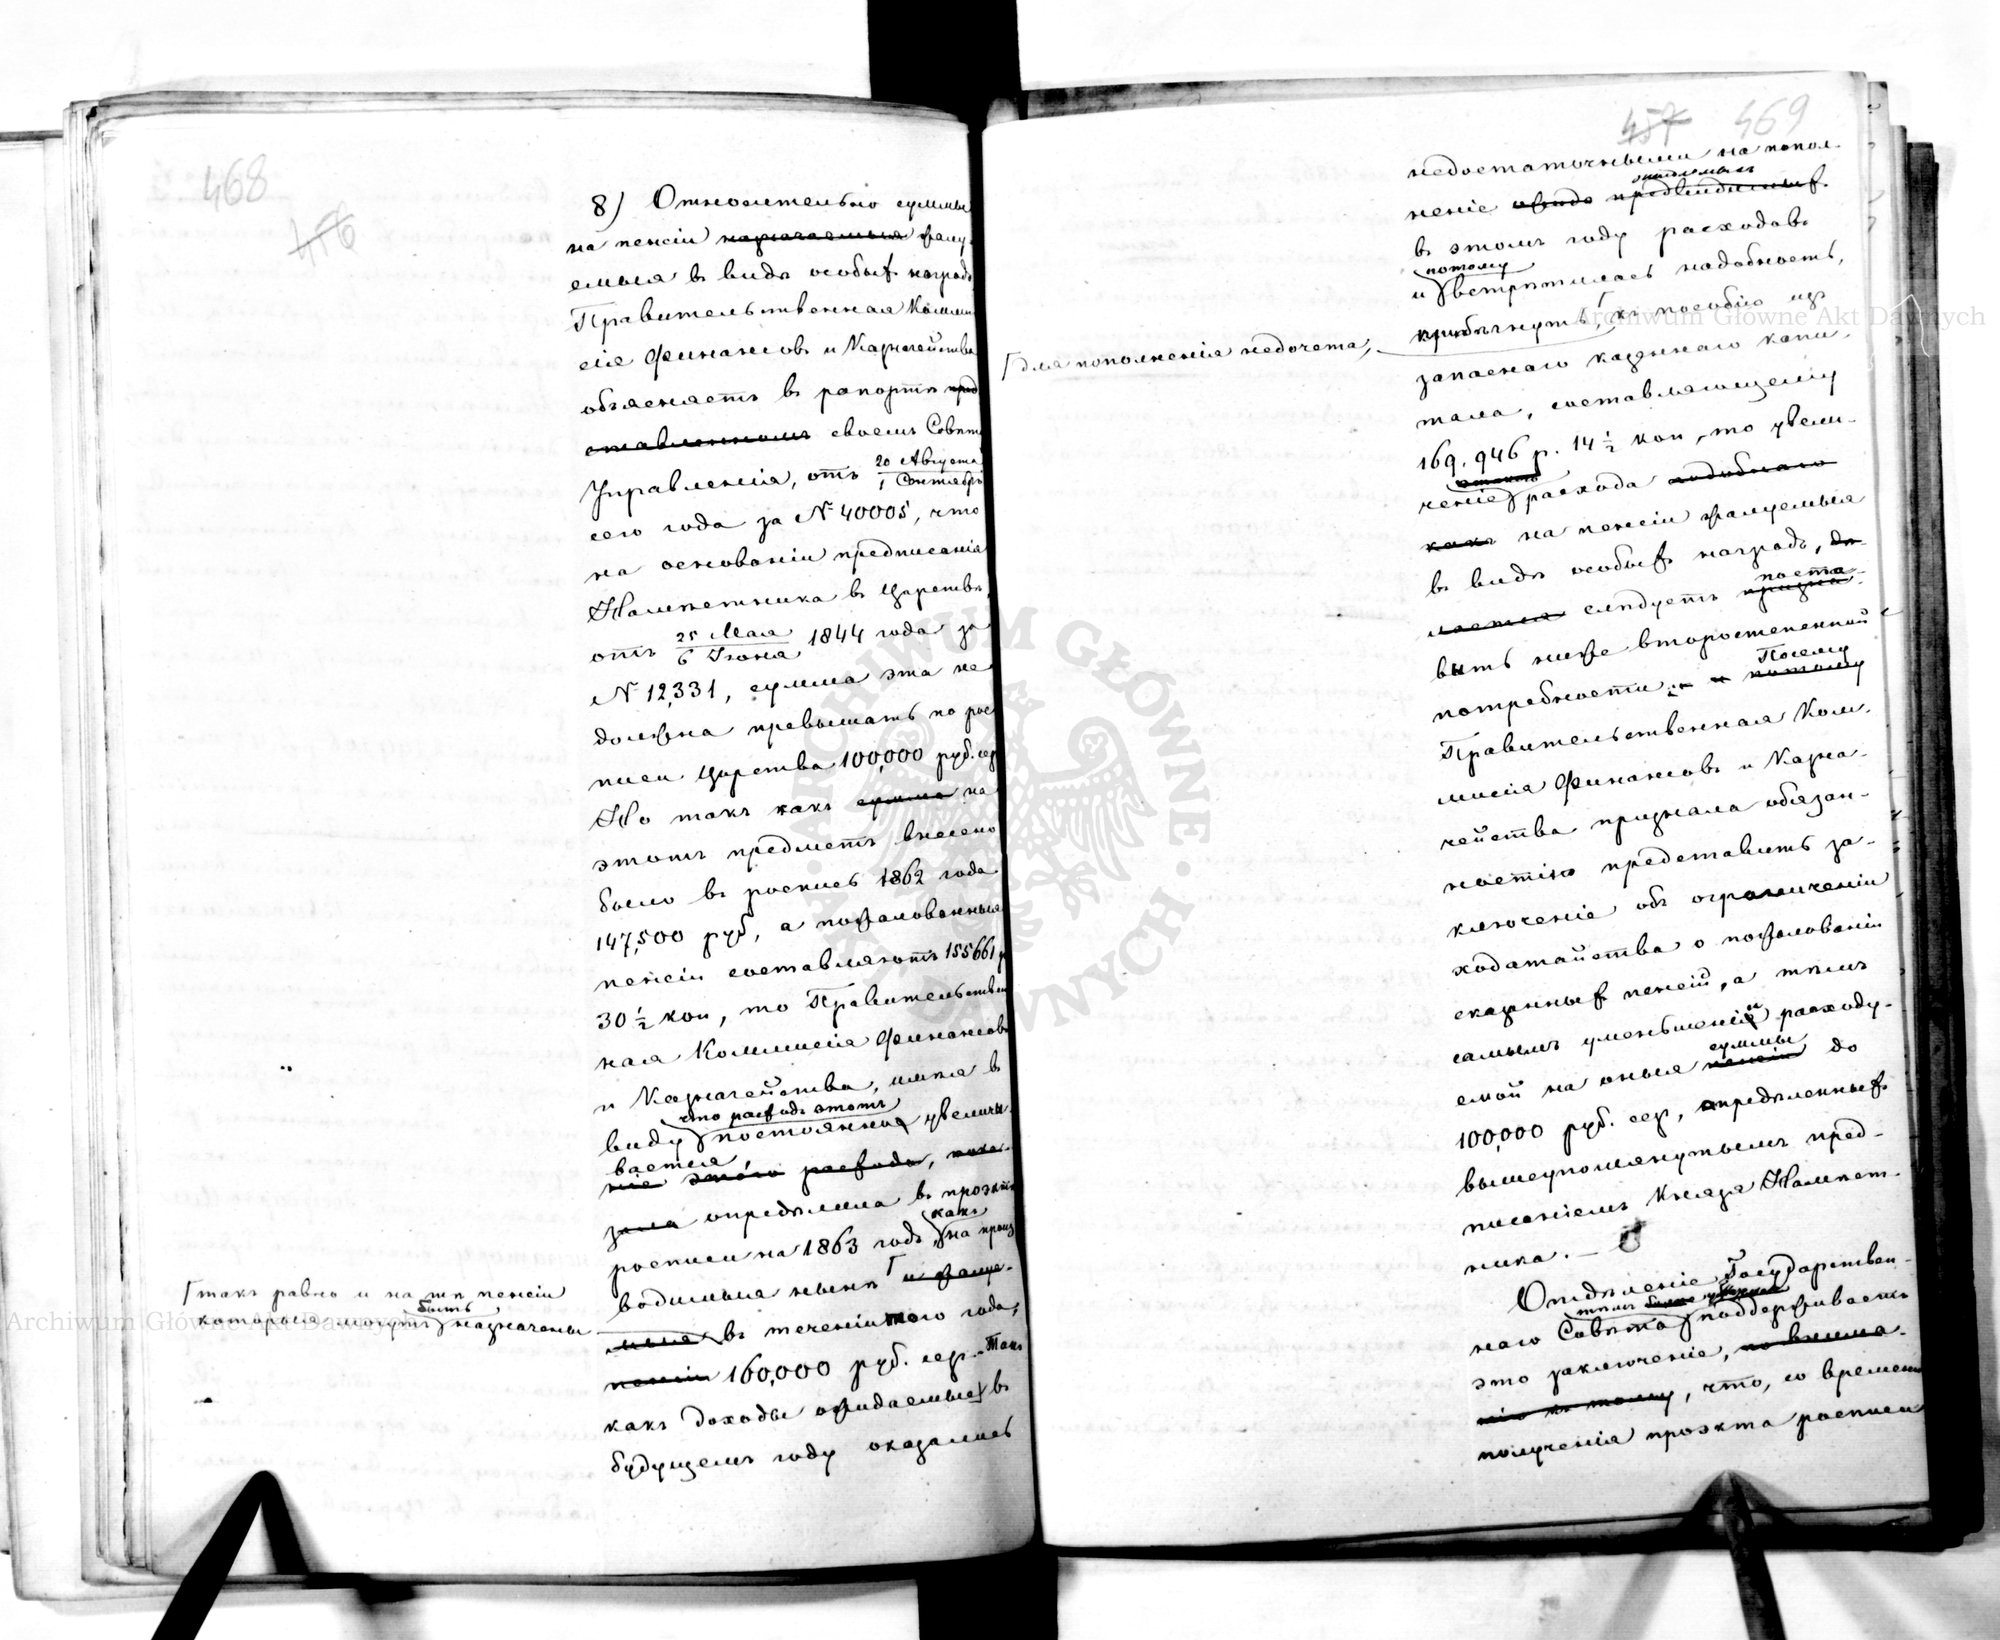 468
456
8) Относительно суммы
на пенсіи назначаемыя жалу-
емыя в видѣ особых наград,
Правительственная Коммис-
сія Финансовъ и Казначейства
объясняетъ въ рапортѣ пред-
ставленномъ своемъ Совѣту
Управленія, отъ 20 Августа
1 Сентября
сего года за № 40005, что
на основаніи предписанія
Намѣстника въ Царствѣ,
отъ 25 Мая 1844 года за
6 Іюня
№ 12,331, сумма эта не
должна превышать по рос-
писи Царства 100,000 руб. сер.
Но такъ какъ сумма на
этотъ предметъ внесено
было въ роспись 1862 года
147,500 руб, а пожалованныя
пенсіи составляютъ 155661 р
30 ½ коп, то Правительствен-
ная Коммисія Финансовъ
и Казначейства, имѣя в
что расходъ этотъ
виду постоянно увеличи-
вается,
ніе этого расхода, пока-
зала опредѣлила въ проэктѣ
какъ
росписи на 1863 годъ, на произ-
водимыя нынѣ и жалуе-
мыя въ теченіи того года,
пенсіи 160,000 руб. сер. Такъ
какъ доходы ожидаемые в
будущемъ году оказались
такъ равно и на тѣ пенсіи
быть
которыя могутъ назначены
457 469
недостаточными на попол-
неніе предвидимыхъ
въ этомъ году расходовъ
потому
и встрѣтилась надобность,
для пополненія недочета,
прибѣгнуть, къ пособію изъ
запаснаго казеннаго капи-
тала, составляющему
169.946 р. 14 ½ коп, то увели-
ченіе расхода подобнаго
какъ на пенсіи жалуемыя
въ видѣ особыхъ наградъ, до-
поста-
лжется слѣдуетъ призна-
вить ниже второстепенной
Посему
потребности и потому
Правительственная Ком-
мисія Финансовъ и Казна-
чейства признала обязан-
ностію представить за-
ключеніе объ ограниченіи
ходатайства о пожалованіи
сказанныхъ пенсій, а тѣмъ
самымъ уменьшеніи расходу-
суммы
емой на оныя пенсіи до
100,000 руб. сер, опредѣленныхъ
вышеупомянутымъ пред-
писаніемъ Князя Намѣст-
ника. —
Отдѣленіе Государствен-
тѣмъ болѣе
наго Совѣта поддерживаетъ
это заключеніе, по внима-
нію къ тому, что, со времени
полученія проэкта росписи
Archiwum Główne Akt Dawnych
Archiwum Główne Akt Dawnych
ARCHIWUM GŁÓWNE AKT DAWNYCH